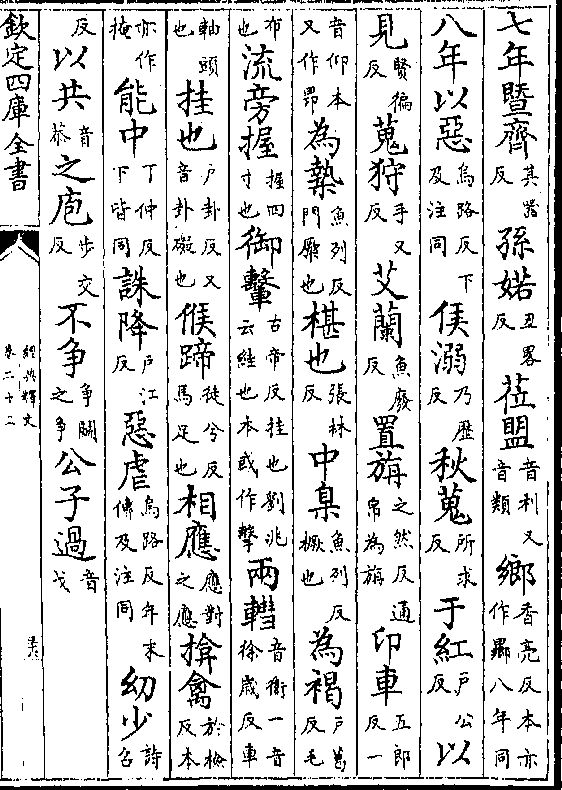 七年暨齊其器反孫婼丑畧反莅盟音利又音類鄉香亮反本亦作曏八年同
八年以惡烏路反下及注同侯溺乃歷反秋蒐所求反于紅戶公反以
見賢徧反蒐狩手又反艾蘭魚廢反置旃之然反通帛為旃印車五郎反一
音仰本又作昻為槷魚列反門橛也椹也張林反中臬魚列反橛也為褐戶葛反毛
布也流旁握握四寸也御轚古帝反挂也劉兆云絓也本或作擊兩轊音衛一音徐歲反車
軸頭也挂也戶卦反又音卦礙也候蹄徒兮反馬足也相應應對之應揜禽於檢反本
亦作掩能中丁仲反下皆同誅降戶江反惡虐烏路反年末傳及注同幼少詩召
反以共音恭之庖步交反不争争鬬之争公子過音戈
欽定四庫全書
經典釋文
卷二十二